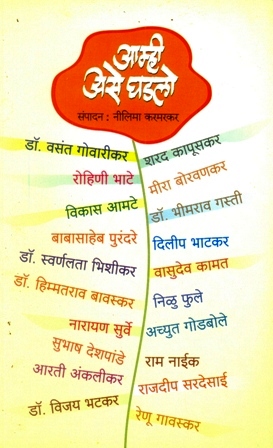 आम्ही
असे घडलो
संपादन : नीलिमा करमरकर
डॉ. वसंत गोवारीकर
शरद कापूसकर
रोहिणी भाटे
मीरा बोरवणकर
विकास आमटे
डॉ. भीमराव गस्ती
बाबासाहेब पुरंदरे
दिलीप भाटकर
डॉ. स्वर्णलता भिशीकर
वासुदेव कामत
डॉ. हिम्मतराव बावस्कर
निळु फुले
नारायण सुर्वे
अच्युत गोडबोले
सुभाष देशपांडे
राम नाईक
आरती अंकलीकर
राजदीप सरदेसाई
डॉ. विजय भटकर
रेणू गावस्कर